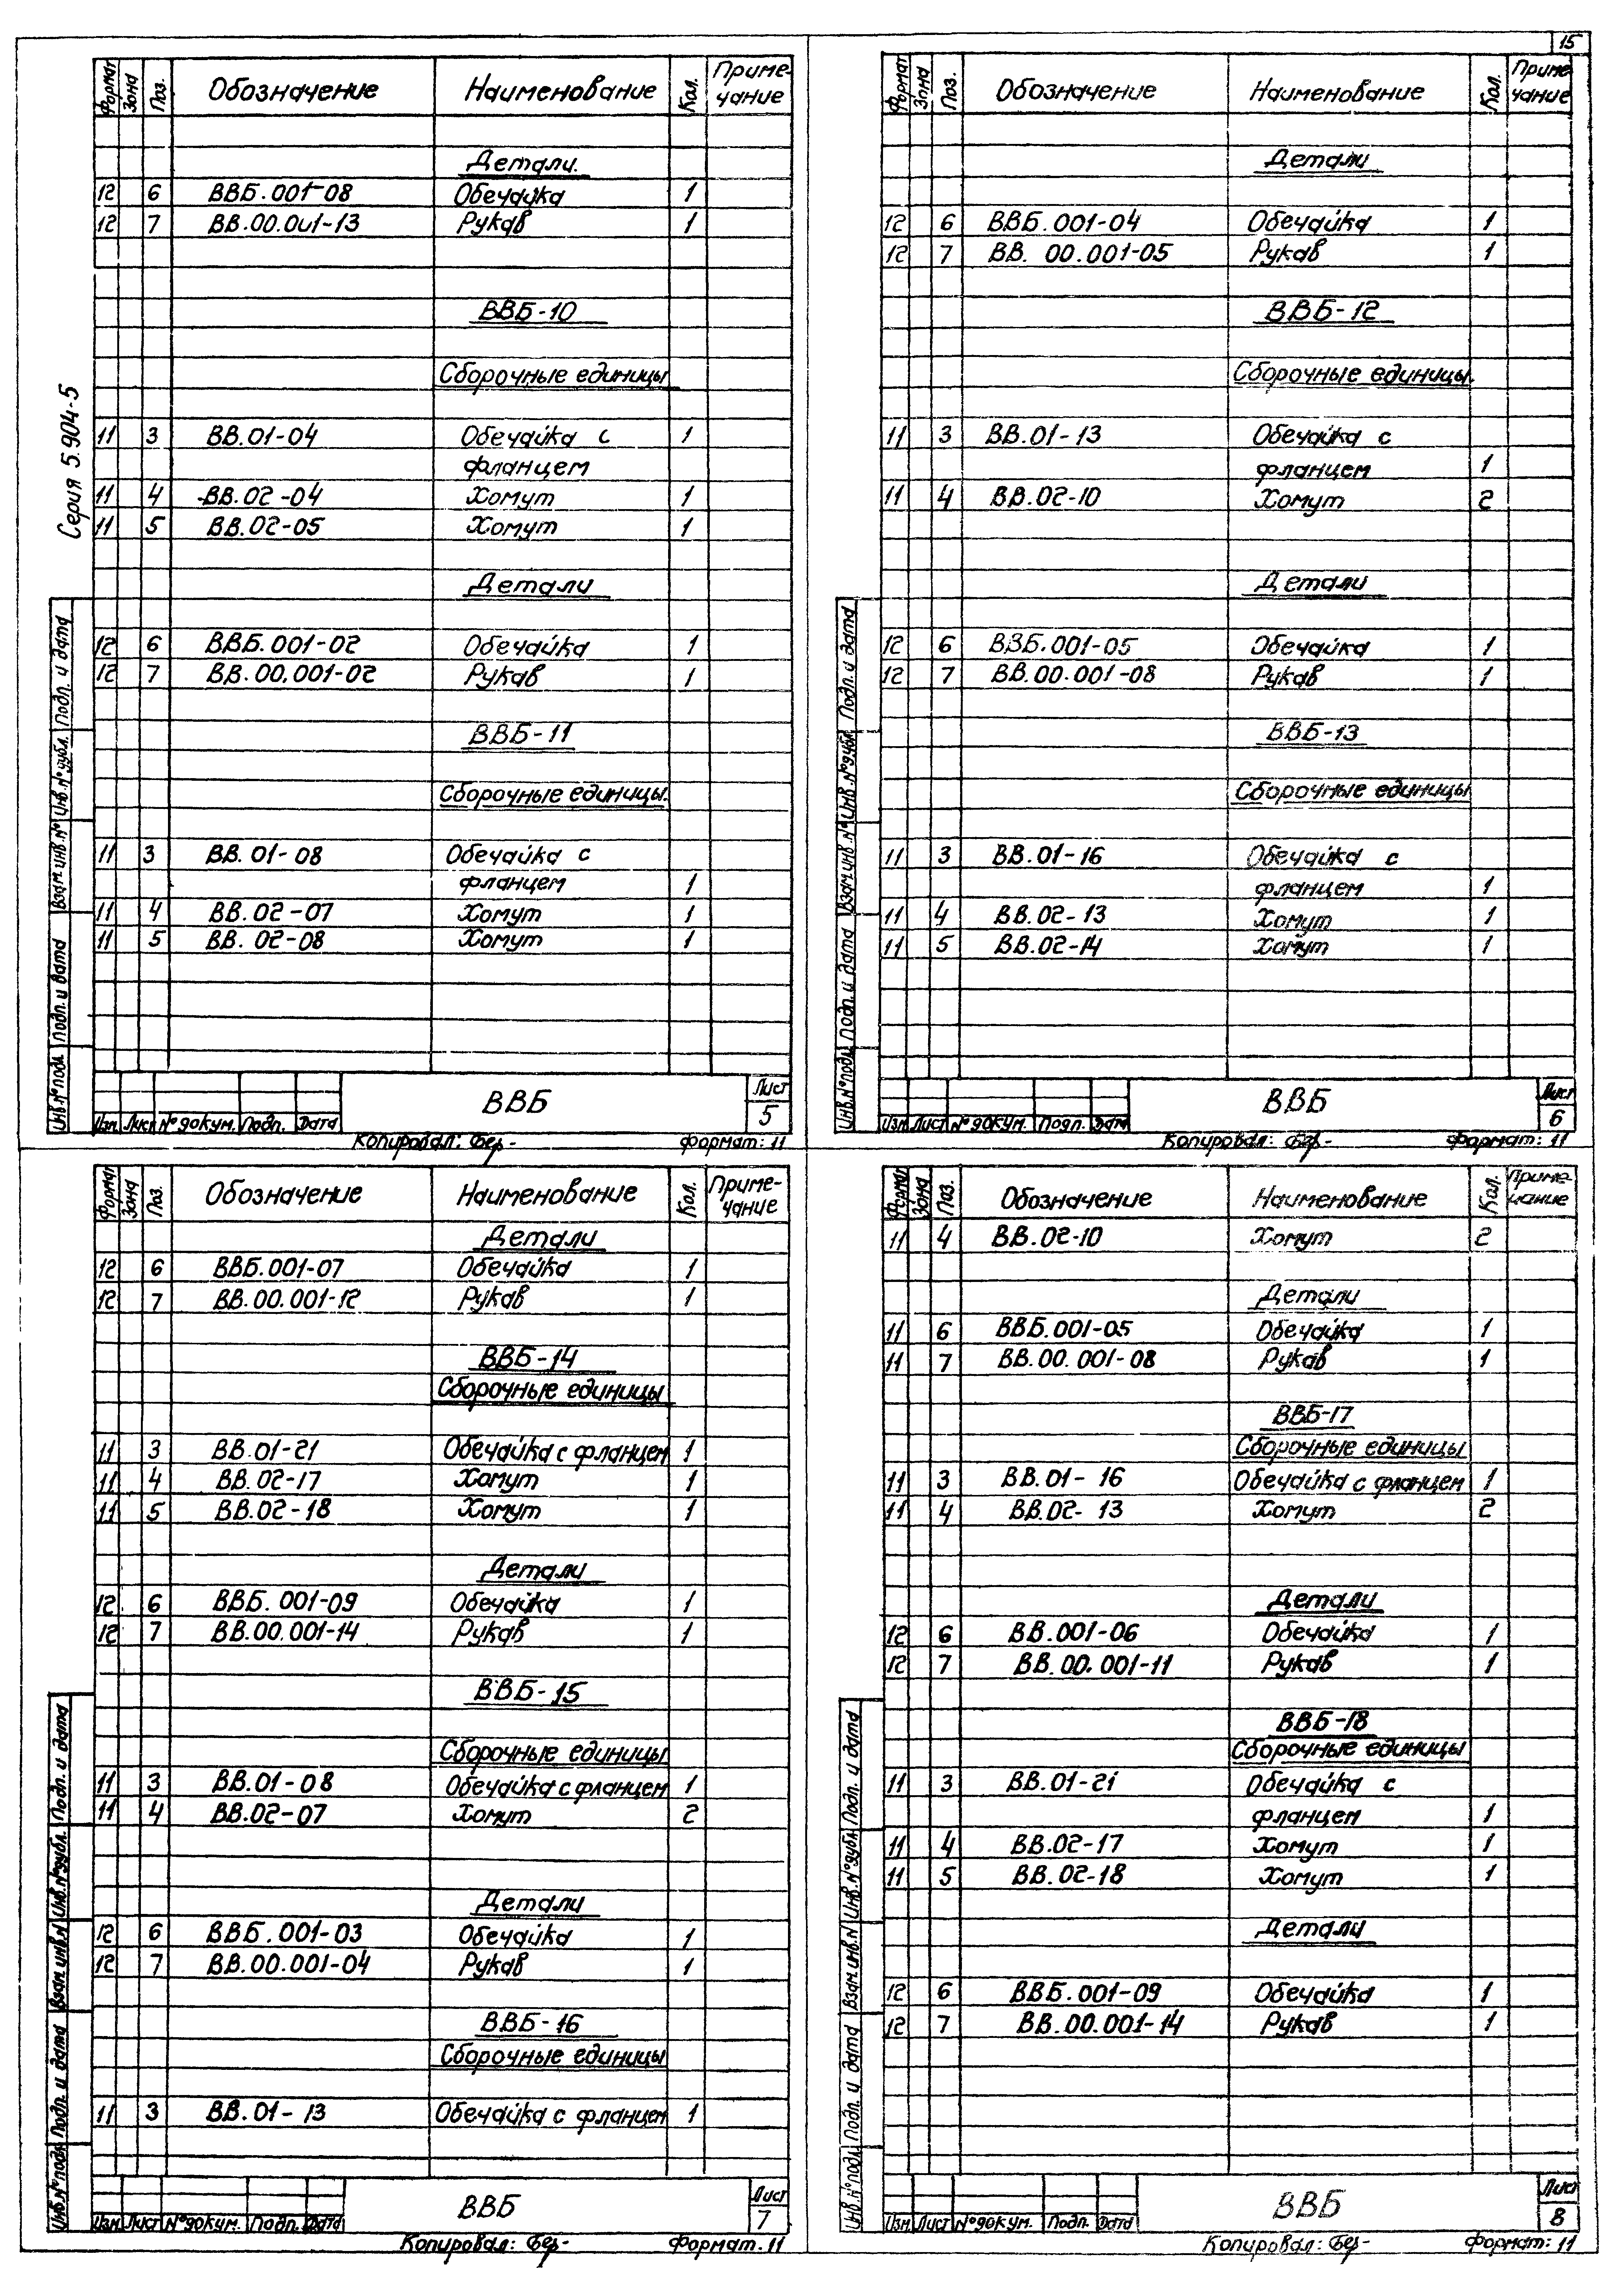 15
Серия 5.904-5
Формат Зона Поз. Обозначение Наименование Кол. Приме-
чание
Детали.
12 6 ВВБ.001-08 Обечайка 1
12 7 ВВ.00.001-13 Рукав 1
ВВБ-10
Сборочные единицы
11 3 ВВ.01-04 Обечайка с 1
фланцем
11 4 ВВ.02-04 Хомут 1
11 5 ВВ.02-05 Хомут 1
Детали
12 6 ВВБ.001-02 Обечайка 1
12 7 ВВ.00.001-02 Рукав 1
ВВБ-11
Сборочные единицы.
11 3 ВВ.01-08 Обечайка с
фланцем 1
11 4 ВВ.02-07 Хомут 1
11 5 ВВ.02-08 Хомут 1
Инв.№подл. Подп. и дата Взам.инв.№ Инв.№дубл. Подп. и дата
Изм. Лист №докум. Подп. Дата
ВВБ
Лист
5
Копировал: Бер- Формат: 11
Формат Зона Поз. Обозначение Наименование Кол. Приме
чание
Детали
12 6 ВВБ.001-04 Обечайка 1
12 7 ВВ. 00.001-05 Рукав 1
ВВБ-12
Сборочные единицы.
11 3 ВВ.01-13 Обечайка с
фланцем 1
11 4 ВВ.02-10 Хомут 2
Детали
12 6 ВВБ.001-05 Обечайка 1
12 7 ВВ.00.001-08 Рукав 1
ВВБ-13
Сборочные единицы
11 3 ВВ.01-16 Обечайка с
фланцем 1
11 4 ВВ.02-13 Хомут 1
11 5 ВВ.02-14 Хомут 1
Инв.№подл. Подп. и дата Взам.инв.№ Инв.№дубл. Подп. и дата
Изм Лист №докум. Подп. Дата
ВВБ
Лист
6
Копировал: Бер- Формат: 11
Формат Зона Поз. Обозначение Наименование Кол. Приме-
чание
Детали
12 6 ВВБ.001-07 Обечайка 1
12 7 ВВ.00.001-12 Рукав 1
ВВБ-14
Сборочные единицы
11 3 ВВ.01-21 Обечайка с фланцем 1
11 4 ВВ.02-17 Хомут 1
11 5 ВВ.02-18 Хомут 1
Детали
12 6 ВВБ.001-09 Обечайка 1
12 7 ВВ.00.001-14 Рукав 1
ВВБ-15
Сборочные единицы
11 3 ВВ.01-08 Обечайка с фланцем 1
11 4 ВВ.02-07 Хомут 2
Детали
12 6 ВВБ.001-03 Обечайка 1
12 7 ВВ.00.001-04 Рукав 1
ВВБ-16
Сборочные единицы
11 3 ВВ.01-13 Обечайка с фланцем 1
Инв.№подл. Подп. и дата Взам.инв.№ Инв.№дубл. Подп. и дата
Изм. Лист №докум. Подп. Дата
ВВБ
Лист
7
Копировал: Бер- Формат. 11
Формат Зона Поз. Обозначение Наименование Кол. Приме-
чание
11 4 ВВ.02-10 Хомут 2
Детали
11 6 ВВБ.001-05 Обечайка 1
11 7 ВВ.00.001-08 Рукав 1
ВВБ-17
Сборочные единицы
11 3 ВВ.01-16 Обечайка с фланцем 1
11 4 ВВ.02-13 Хомут 2
Детали
12 6 ВВ.001-06 Обечайка 1
12 7 ВВ.00.001-11 Рукав 1
ВВБ-18
Сборочные единицы
11 3 ВВ.01-21 Обечайка с
фланцем 1
11 4 ВВ.02-17 Хомут 1
11 5 ВВ.02-18 Хомут 1
Детали
12 6 ВВБ.001-09 Обечайка 1
12 7 ВВ.00.001-14 Рукав 1
Инв.№подл. Подп. и дата Взам.инв.№ Инв.№дубл. Подп. и дата
Изм. Лист №докум. Подп. Дата
ВВБ
Лист
8
Копировал: Бер- Формат: 11